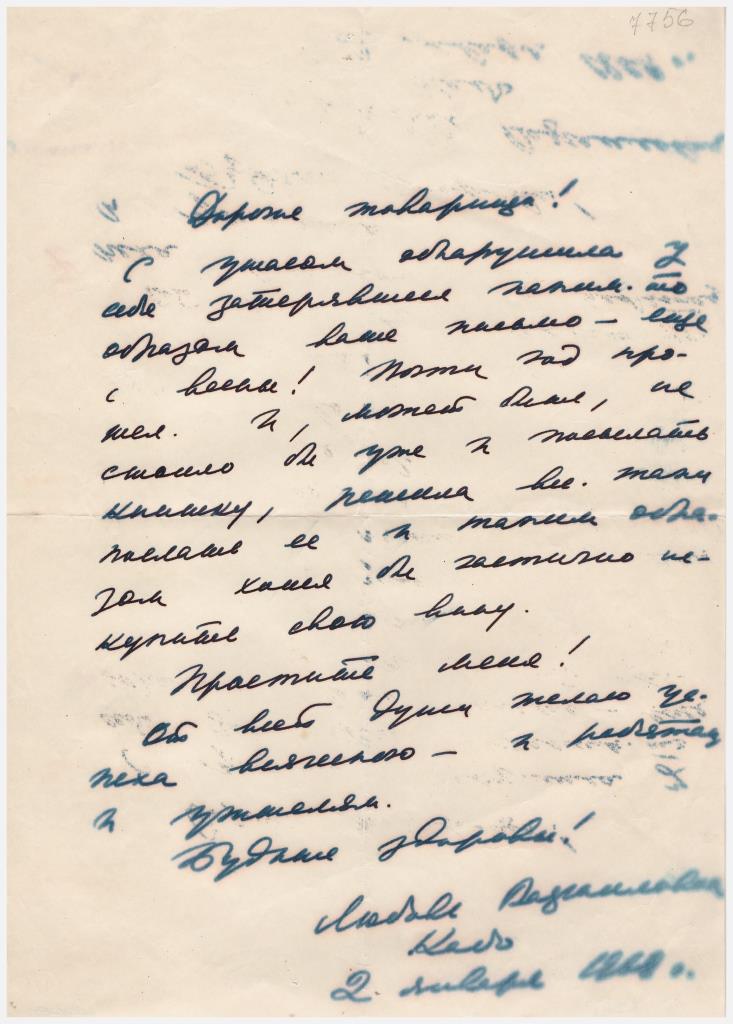 7756
Дорогие товарищи!
С ужасом обнаружила у
себя затерявшееся каким-то
образом ваше письмо – еще
с весны! Почти год про-
шел. И, может быть, не
стоило бы уже и посылать
книжку, решила все-таки
послать ее и таким обра-
зом хотя бы частично ис-
купить свою вину.
Простите меня!
От всей души желаю ус-
пеха всяческого – и ребятам
и учителям.
Будьте здоровы!
Любовь Рафаиловна
Кабо
2 января 1968 г.